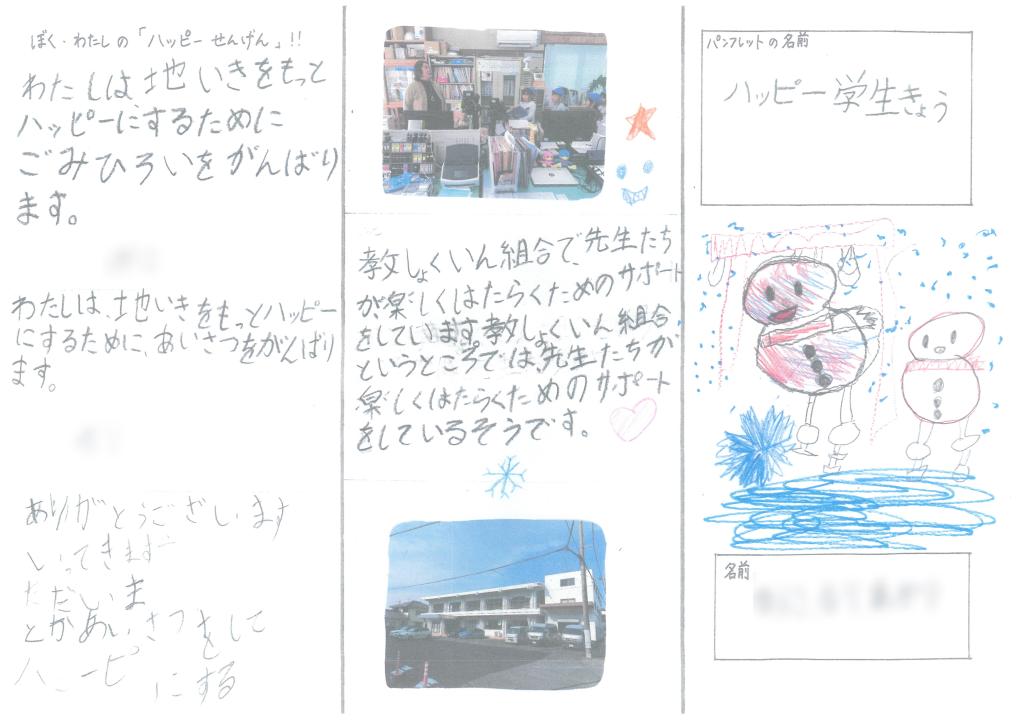 ぼく・わたしの「ハッピーせんげん」!!
わたしは地いきをもっと
ハッピーにするために
ごみひろいをがんばり
ます。
わたしは、地いきをもっとハッピー
にするために、あいさつをがんばり
ます。
ありがとうございます
いってきます
ただいま
とかあいさつをして
ハッピーにする
教しょくいん組合で、先生たち
が楽しくはたらくためのサポート
をしています。教しょくいん組合
というところでは、先生たちが
楽しくはたらくためのサポート
をしているそうです。
パンフレットの名前
ハッピー学生きょう
名前